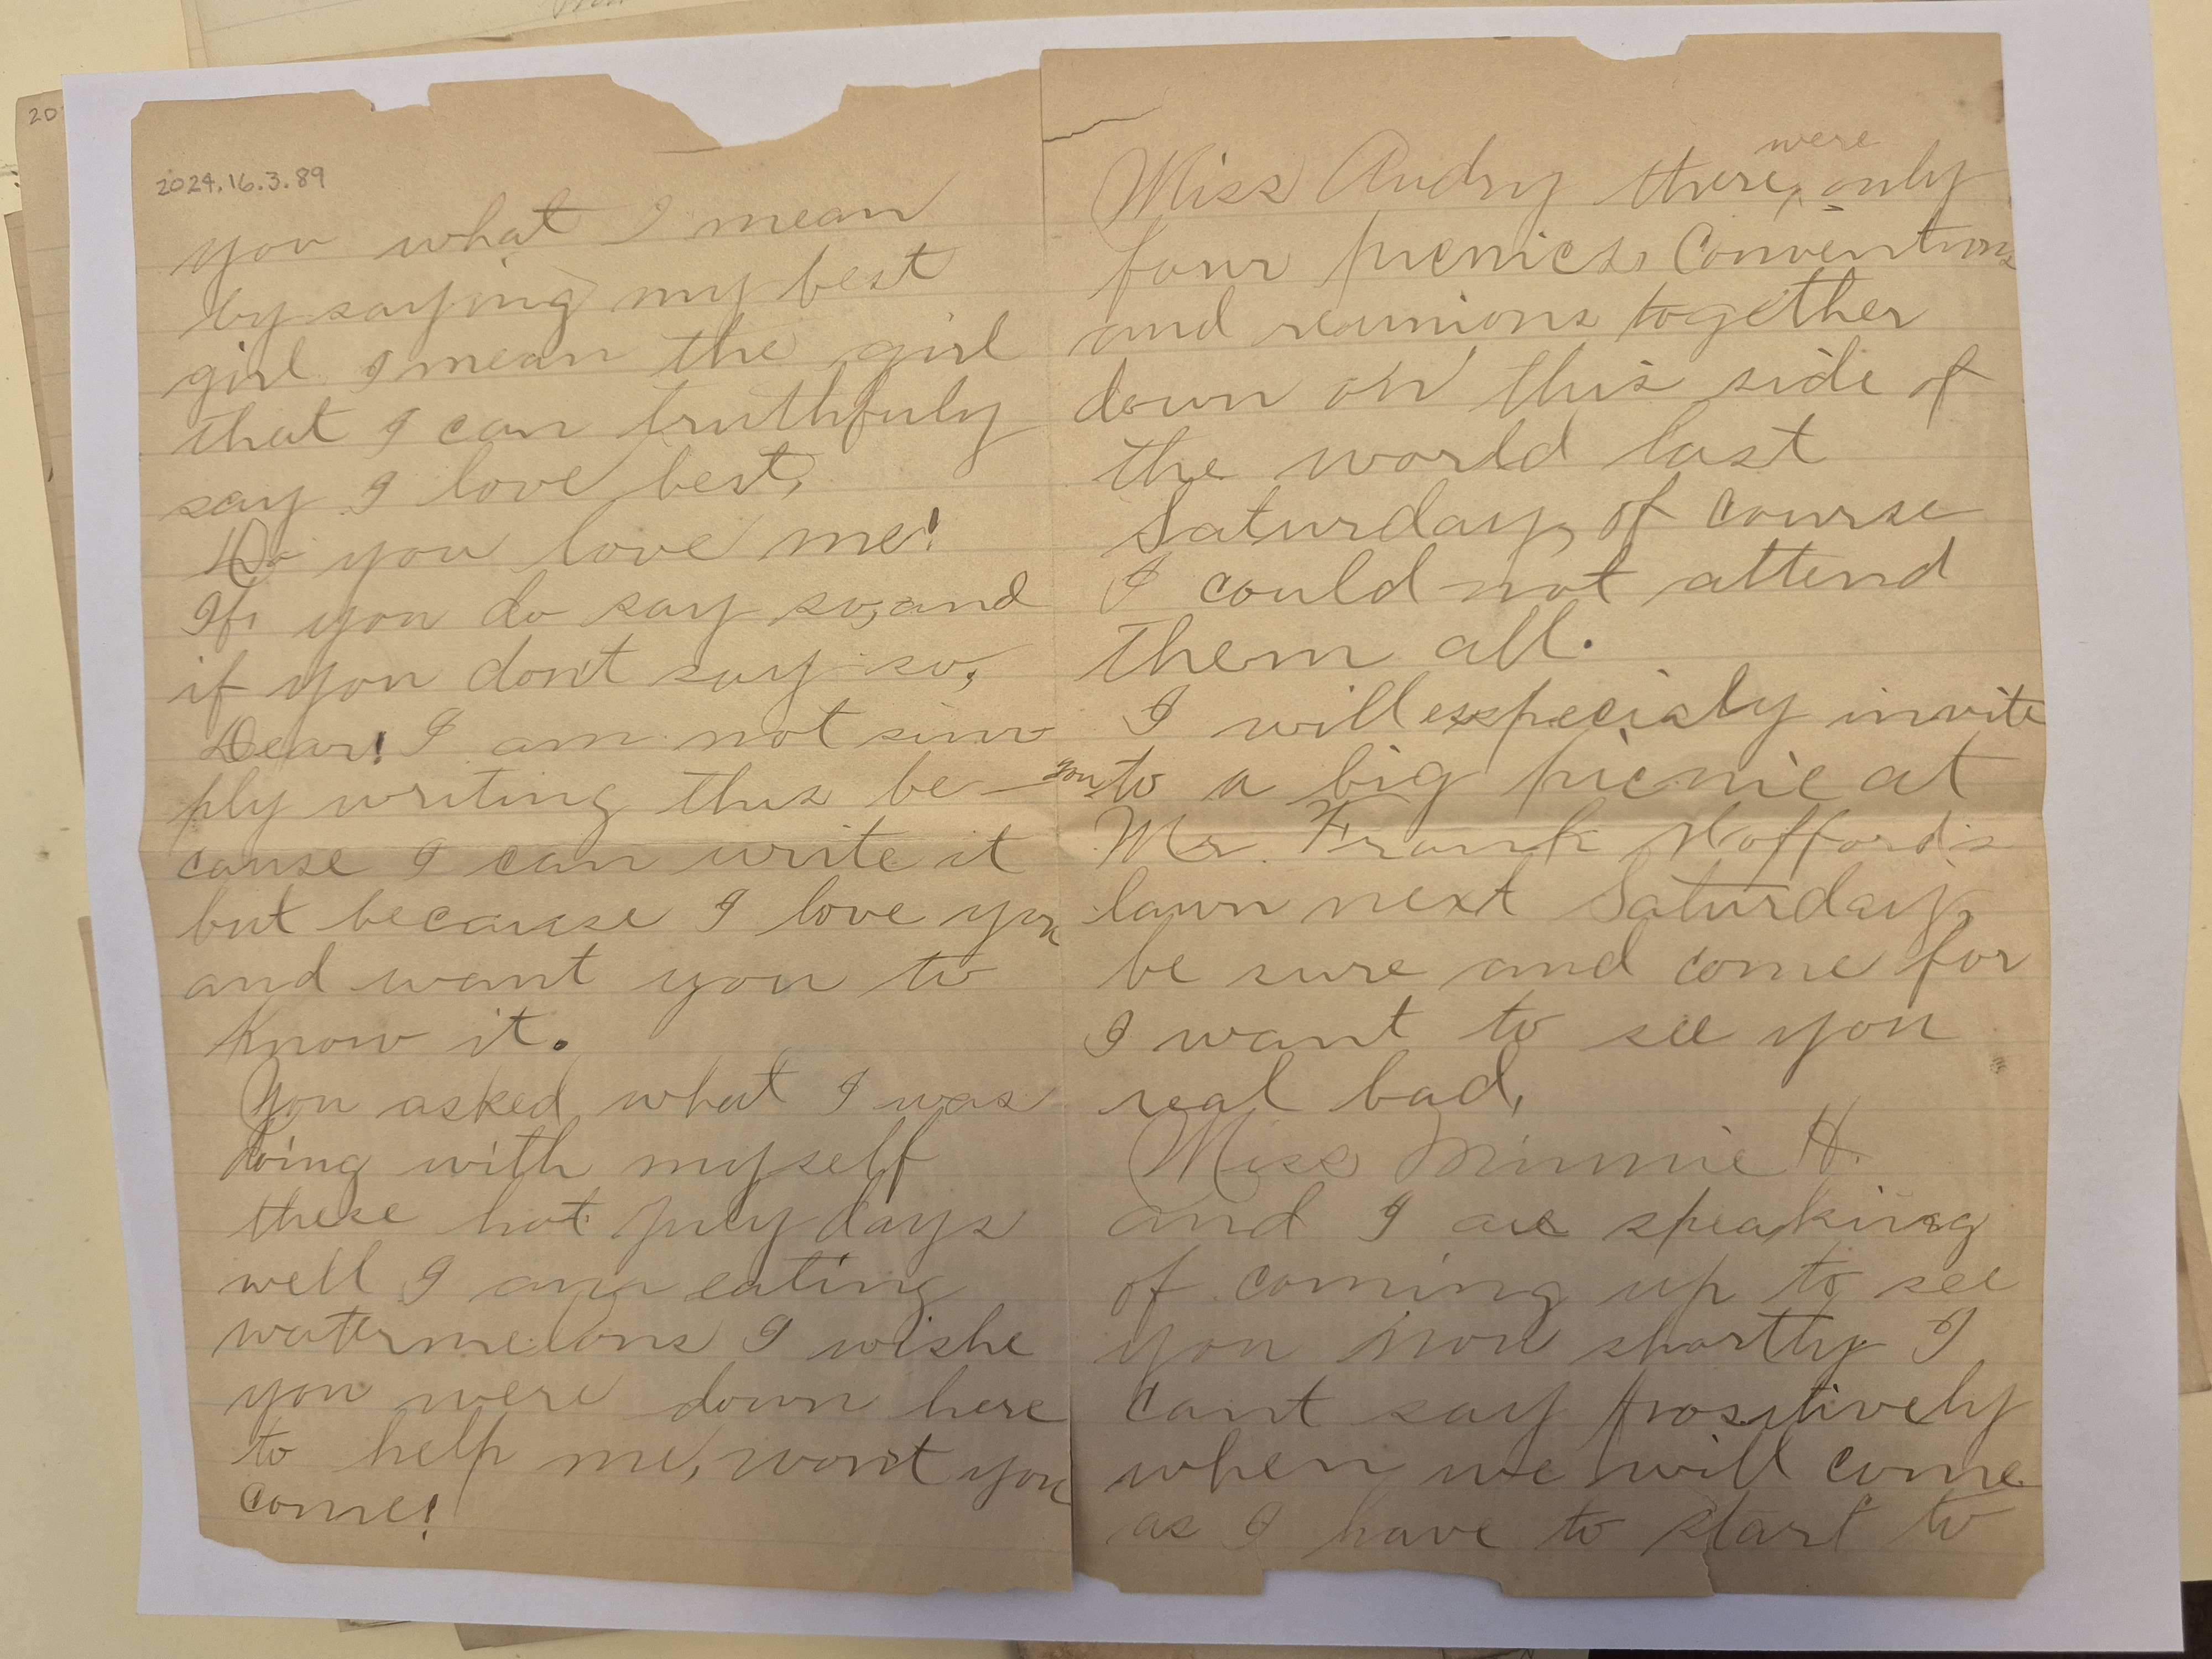 2024.16.3.89
you what I mean
by saying my best
girl I mean the girl
that I can truthfuly
say I love best,
Do you love me!
If you do say so, and
if you don't say so,
Dear! I am not sim
ply writing this be
cause I can write it
but because I love you
and want you to
know it.
You asked what I was
doing with myself
these hot July days
well I am eating
watermelons I wishe
you were down here
to help me, wont you
come!
Miss Audry there were only
four picnics, Conventions
and reunions together
down on this side of
the world last
Saturday, of course
I could not attend
them all.
I will especialy invite
you to a big picnic at
Mr. Frank Hofford's
lawn next Saturday,
be sure and come for
I want to see you
real bad,
Miss Minnie H.
and I are speaking
of coming up to see
you now shortly I
cant say positively
when we will come
as I have to start to
20